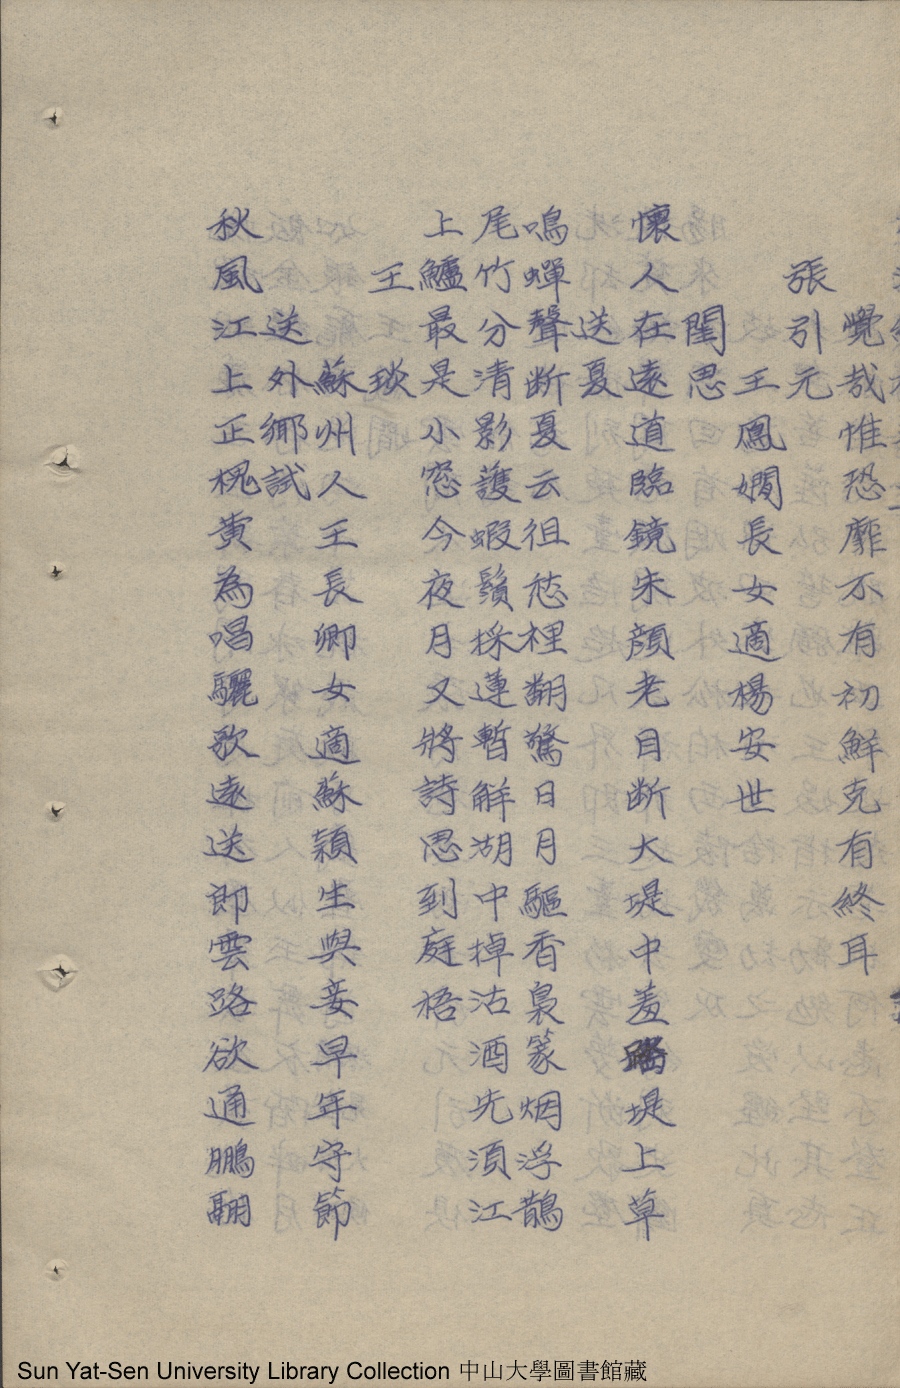 覺哉惟恐靡不有初鮮克有終耳
張引元
王鳳嫻長女適楊安世
閨思
懷人在遠道臨鏡朱顏老目斷大堤中羞堤上草
送夏
鳴蟬聲斷夏云徂愁裡翻驚日月驅香裊篆烟浮鵲
尾竹分清影護蝦鬚採蓮暫解湖中棹沽酒先須江
上鱸最是小窓今夜月又將詩思到庭梧
王琰
蘇州人王長卿女適蘇穎生與妾早年守節
送外鄉試
秋風江上正槐黄為唱驪歌遠送郎雲路欲通鵬翮
Sun Yat-Sen University Library Collection 中山大學圖書館藏